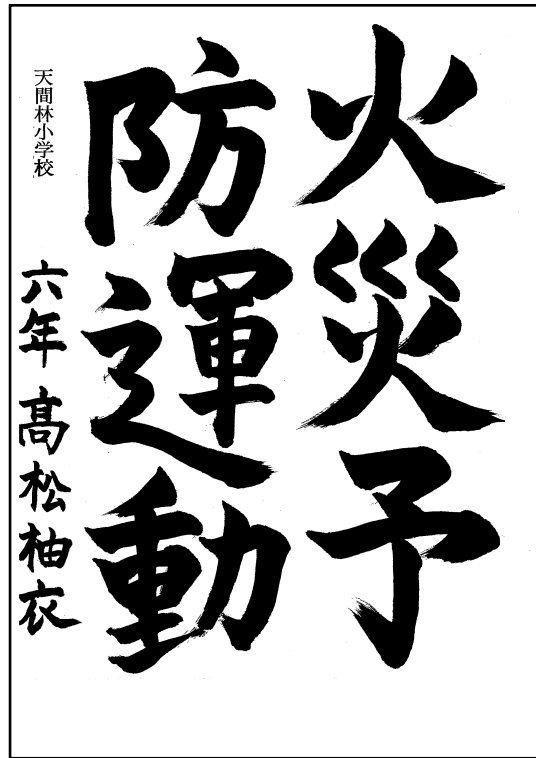 火災予
防運動
天間林小学校
六年髙松柚衣